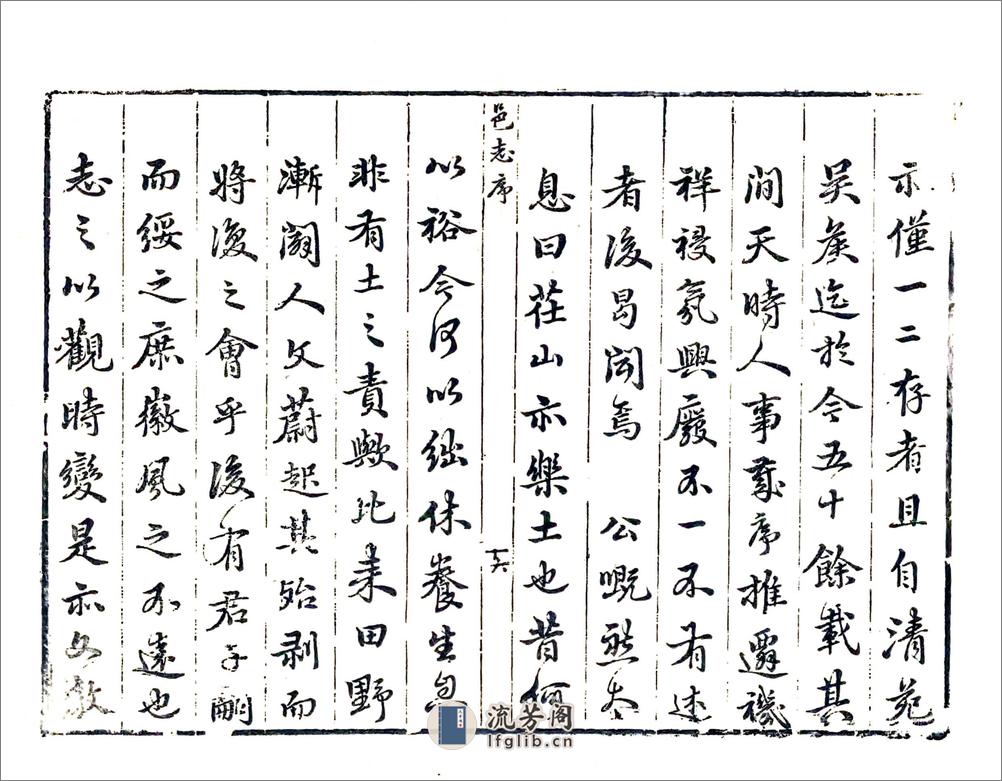 示僅一二存者且自清苑
吳侯迄於今五十餘載其
間天時人事歲序推遷禨
祥祲氛興廢不一不有述
者後曷聞焉 公慨然太
息曰茌山亦樂土也昔何
邑志序
十六
以裕今何以絀休養生息
非有土之責歟比來田野
漸闢人文蔚起其殆剥而
將復之會乎後有君子嗣
而綏之庶徽風之不遠也
志之以觀時變是亦文敎
流芳阁
lfglib.cn